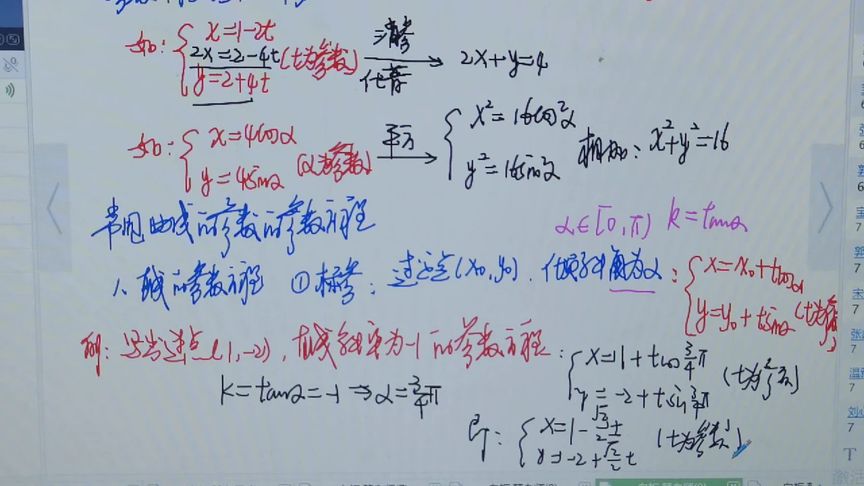 如:{ x=1-2t
2x=2-4t (t为参数) 消参 代替 → 2x+y=4
y=2+4t
如:{ x=4cosα
y=4sinα (α为参数) 平方 → { x²=16cos²α
y²=16sin²α 相加: x²+y²=16
常见曲线的参数的参数方程
α∈[0,π) k=tanα
1、直线的参数方程 ①标参: 过定点(x₀,y₀), 倾斜角为α: { x=x₀+tcosα
y=y₀+tsinα (t为参数)
例: 写出过点(1,-2), 直线斜率为-1的参数方程: { x=1+tcos¾π
y=-2+tsin¾π (t为参数)
k=tanα=-1⇒α=¾π
即: { x=1-√2/2 t
y=-2+√2/2 t (t为参数)